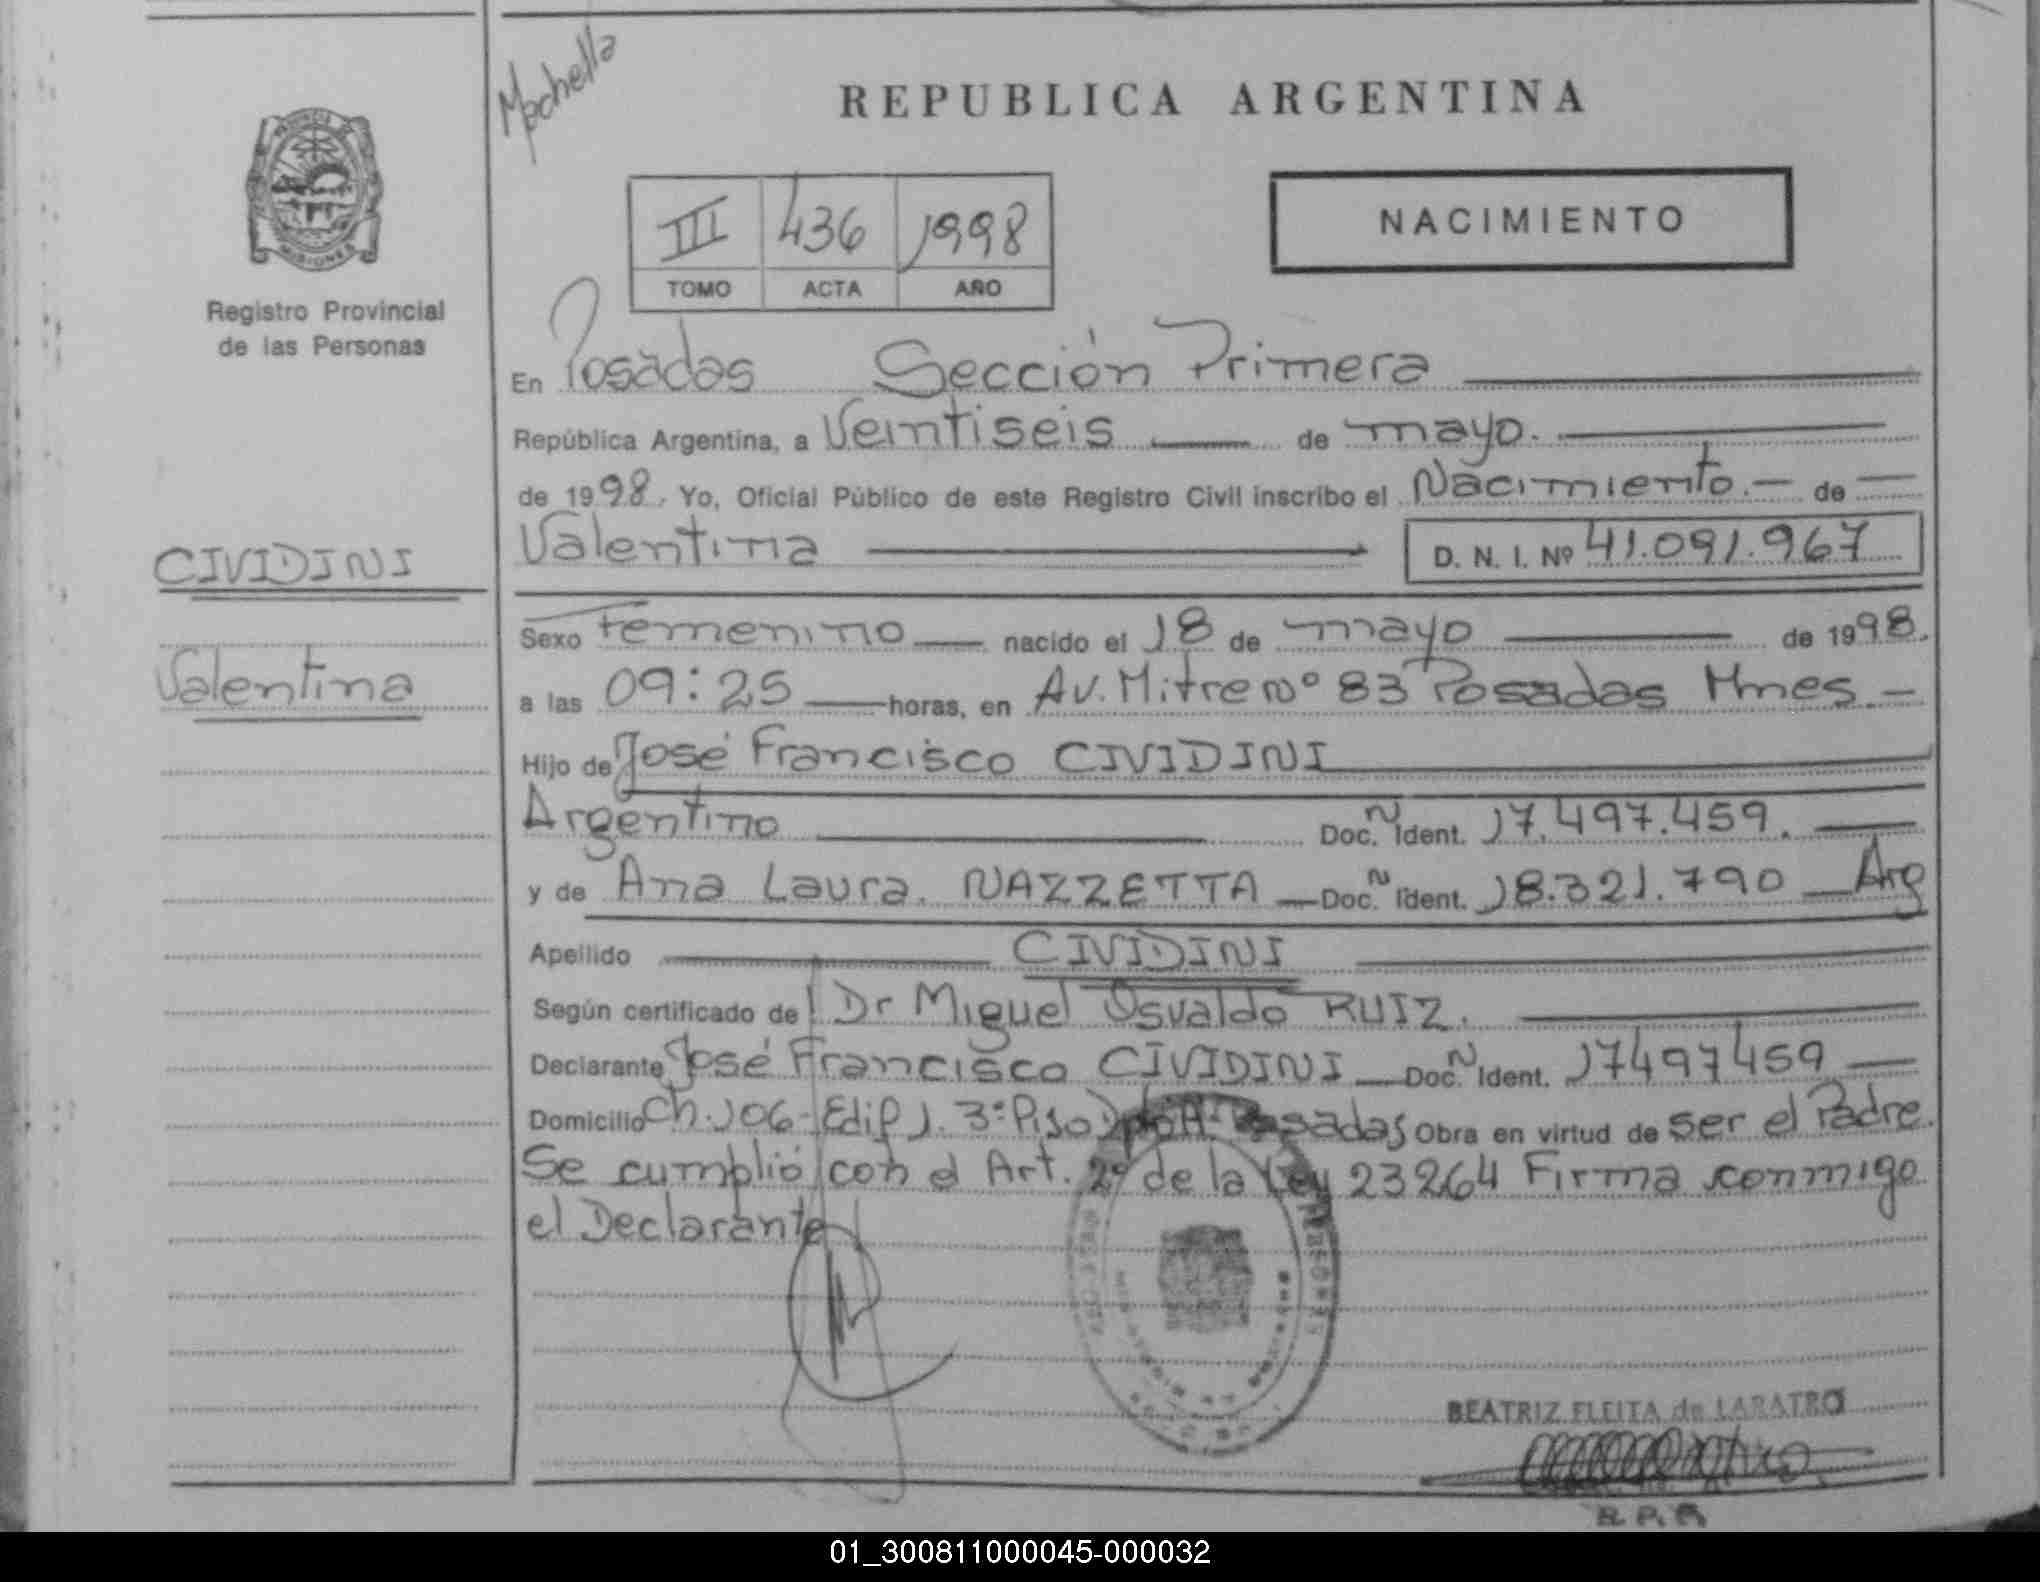 Mochella
REPUBLICA ARGENTINA
PROVINCIA DE
MISIONES
Registro Provincial
de las Personas
III 436 1998
TOMO ACTA AÑO
NACIMIENTO
En Posadas Sección Primera
República Argentina, a Veintiseis de mayo.
de 1998. Yo, Oficial Público de este Registro Civil inscribo el Nacimiento.- de
Valentina D. N. I. Nº 41.091.967
CIVIDINI
Valentina
Sexo Femenino nacido el 18 de mayo de 1998.
a las 09:25 horas, en Av. Mitre nº 83 Posadas Mnes.-
Hijo de José Francisco CIVIDINI
Argentino Doc. N Ident. 17.497.459.
y de Ana Laura. NAZZETTA Doc. N Ident. 18.321.790 Arg
Apellido CIVIDINI
Según certificado de Dr Miguel Osvaldo RUIZ.
Declarante José Francisco CIVIDINI Doc. N Ident. 17497459
Domicilio Ch. 106- Edif 1. 3º Piso Posadas Obra en virtud de ser el Padre.
Se cumplió con el Art. 2º de la Ley 23264 Firma conmigo
el Declarante
BEATRIZ FLEITA de LARATRO
R. P. P.
01_300811000045-000032